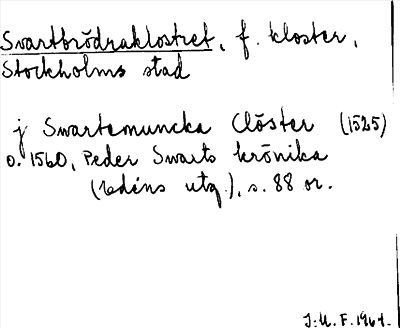 Svartbrödraklostret, f. kloster,
Stockholms stad
j Swartemuncka Clöster (1525)
o. 1560, Peder Swarts krönika
(Edéns utg.), s. 88 or.
J.M.F. 1964.